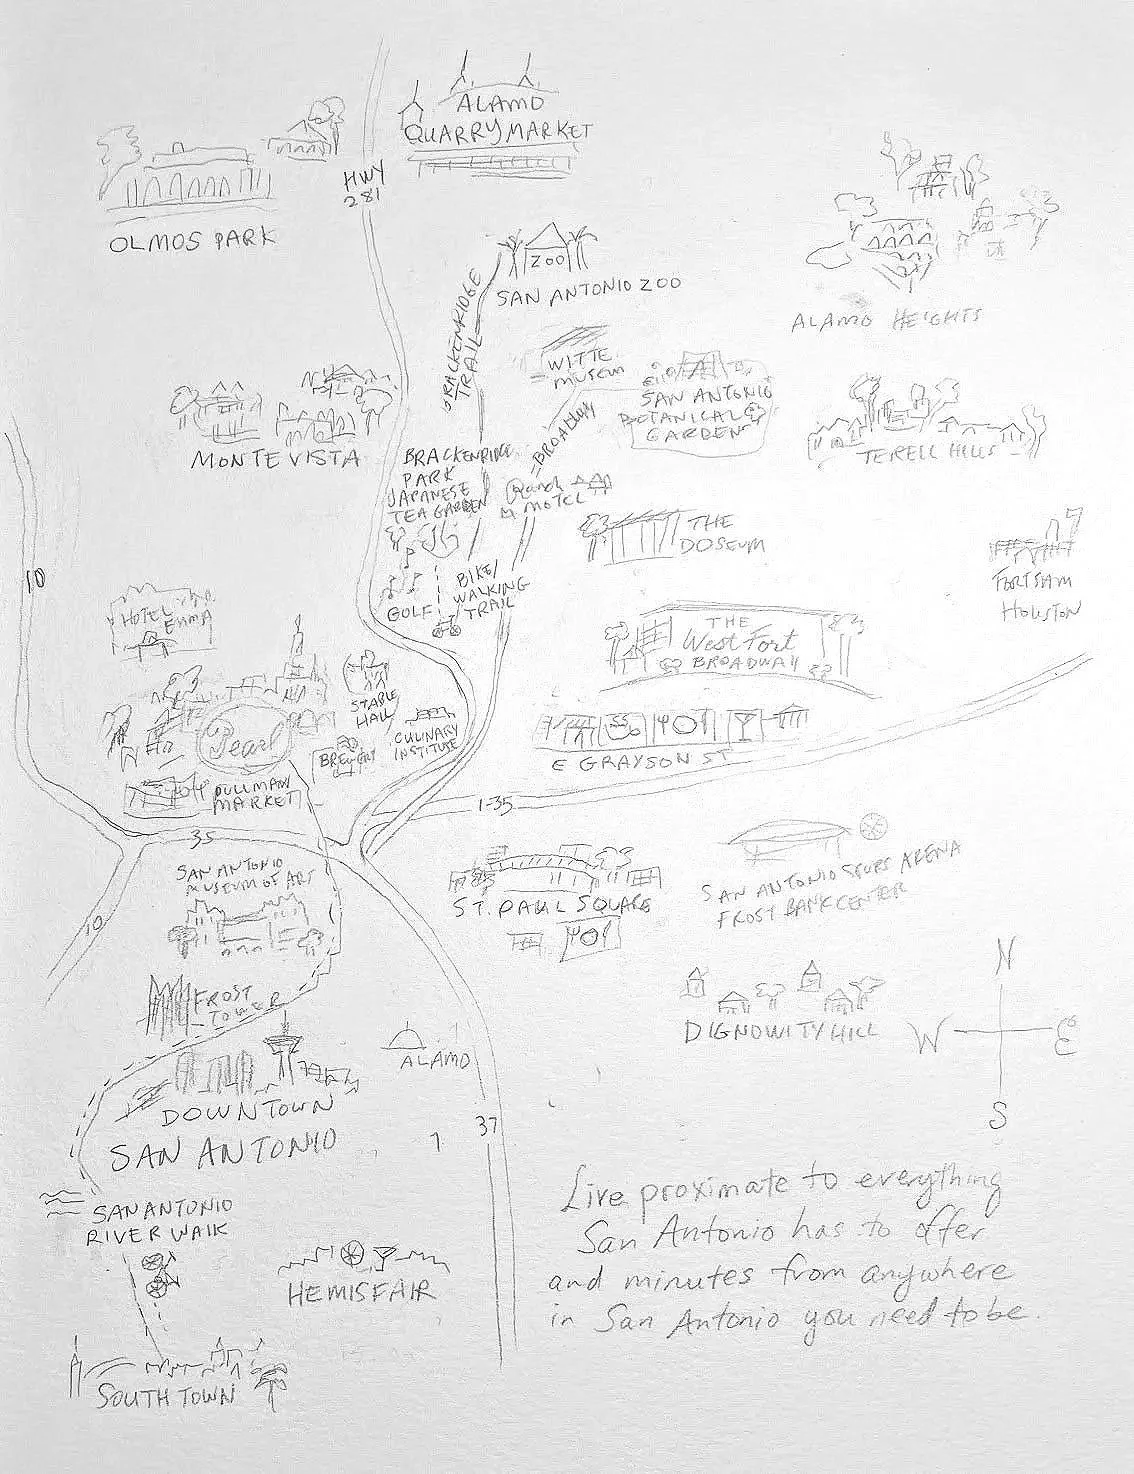 ALAMO
QUARRY MARKET
HWY
281
OLMOS PARK
ZOO
SAN ANTONIO ZOO
BRACKENRIDGE
TRAIL
ALAMO HEIGHTS
WITTE
MUSEUM
SAN ANTONIO
BOTANICAL
GARDEN
BROADWAY
MONTE VISTA
TERELL HILLS
BRACKENRIDGE
PARK
JAPANESE
TEA GARDEN
Ranch
MOTEL
THE
DOSEUM
FORT SAM
HOUSTON
10
BIKE/
WALKING
TRAIL
GOLF
HOTEL
EMMA
THE
West Fort
BROADWAY
STABLE
HALL
Pearl
CULINARY
INSTITUTE
BREWERY
E GRAYSON ST
PULLMAN
MARKET
I-35
35
SAN ANTONIO
MUSEUM OF ART
10
ST. PAUL SQUARE
SAN ANTONIO SPURS ARENA
FROST BANK CENTER
FROST
TOWER
DIGNOWITY HILL
N
W
E
S
ALAMO
DOWNTOWN
SAN ANTONIO
37
SAN ANTONIO
RIVER WALK
HEMISFAIR
SOUTH TOWN
Live proximate to everything
San Antonio has to offer
and minutes from anywhere
in San Antonio you need to be.